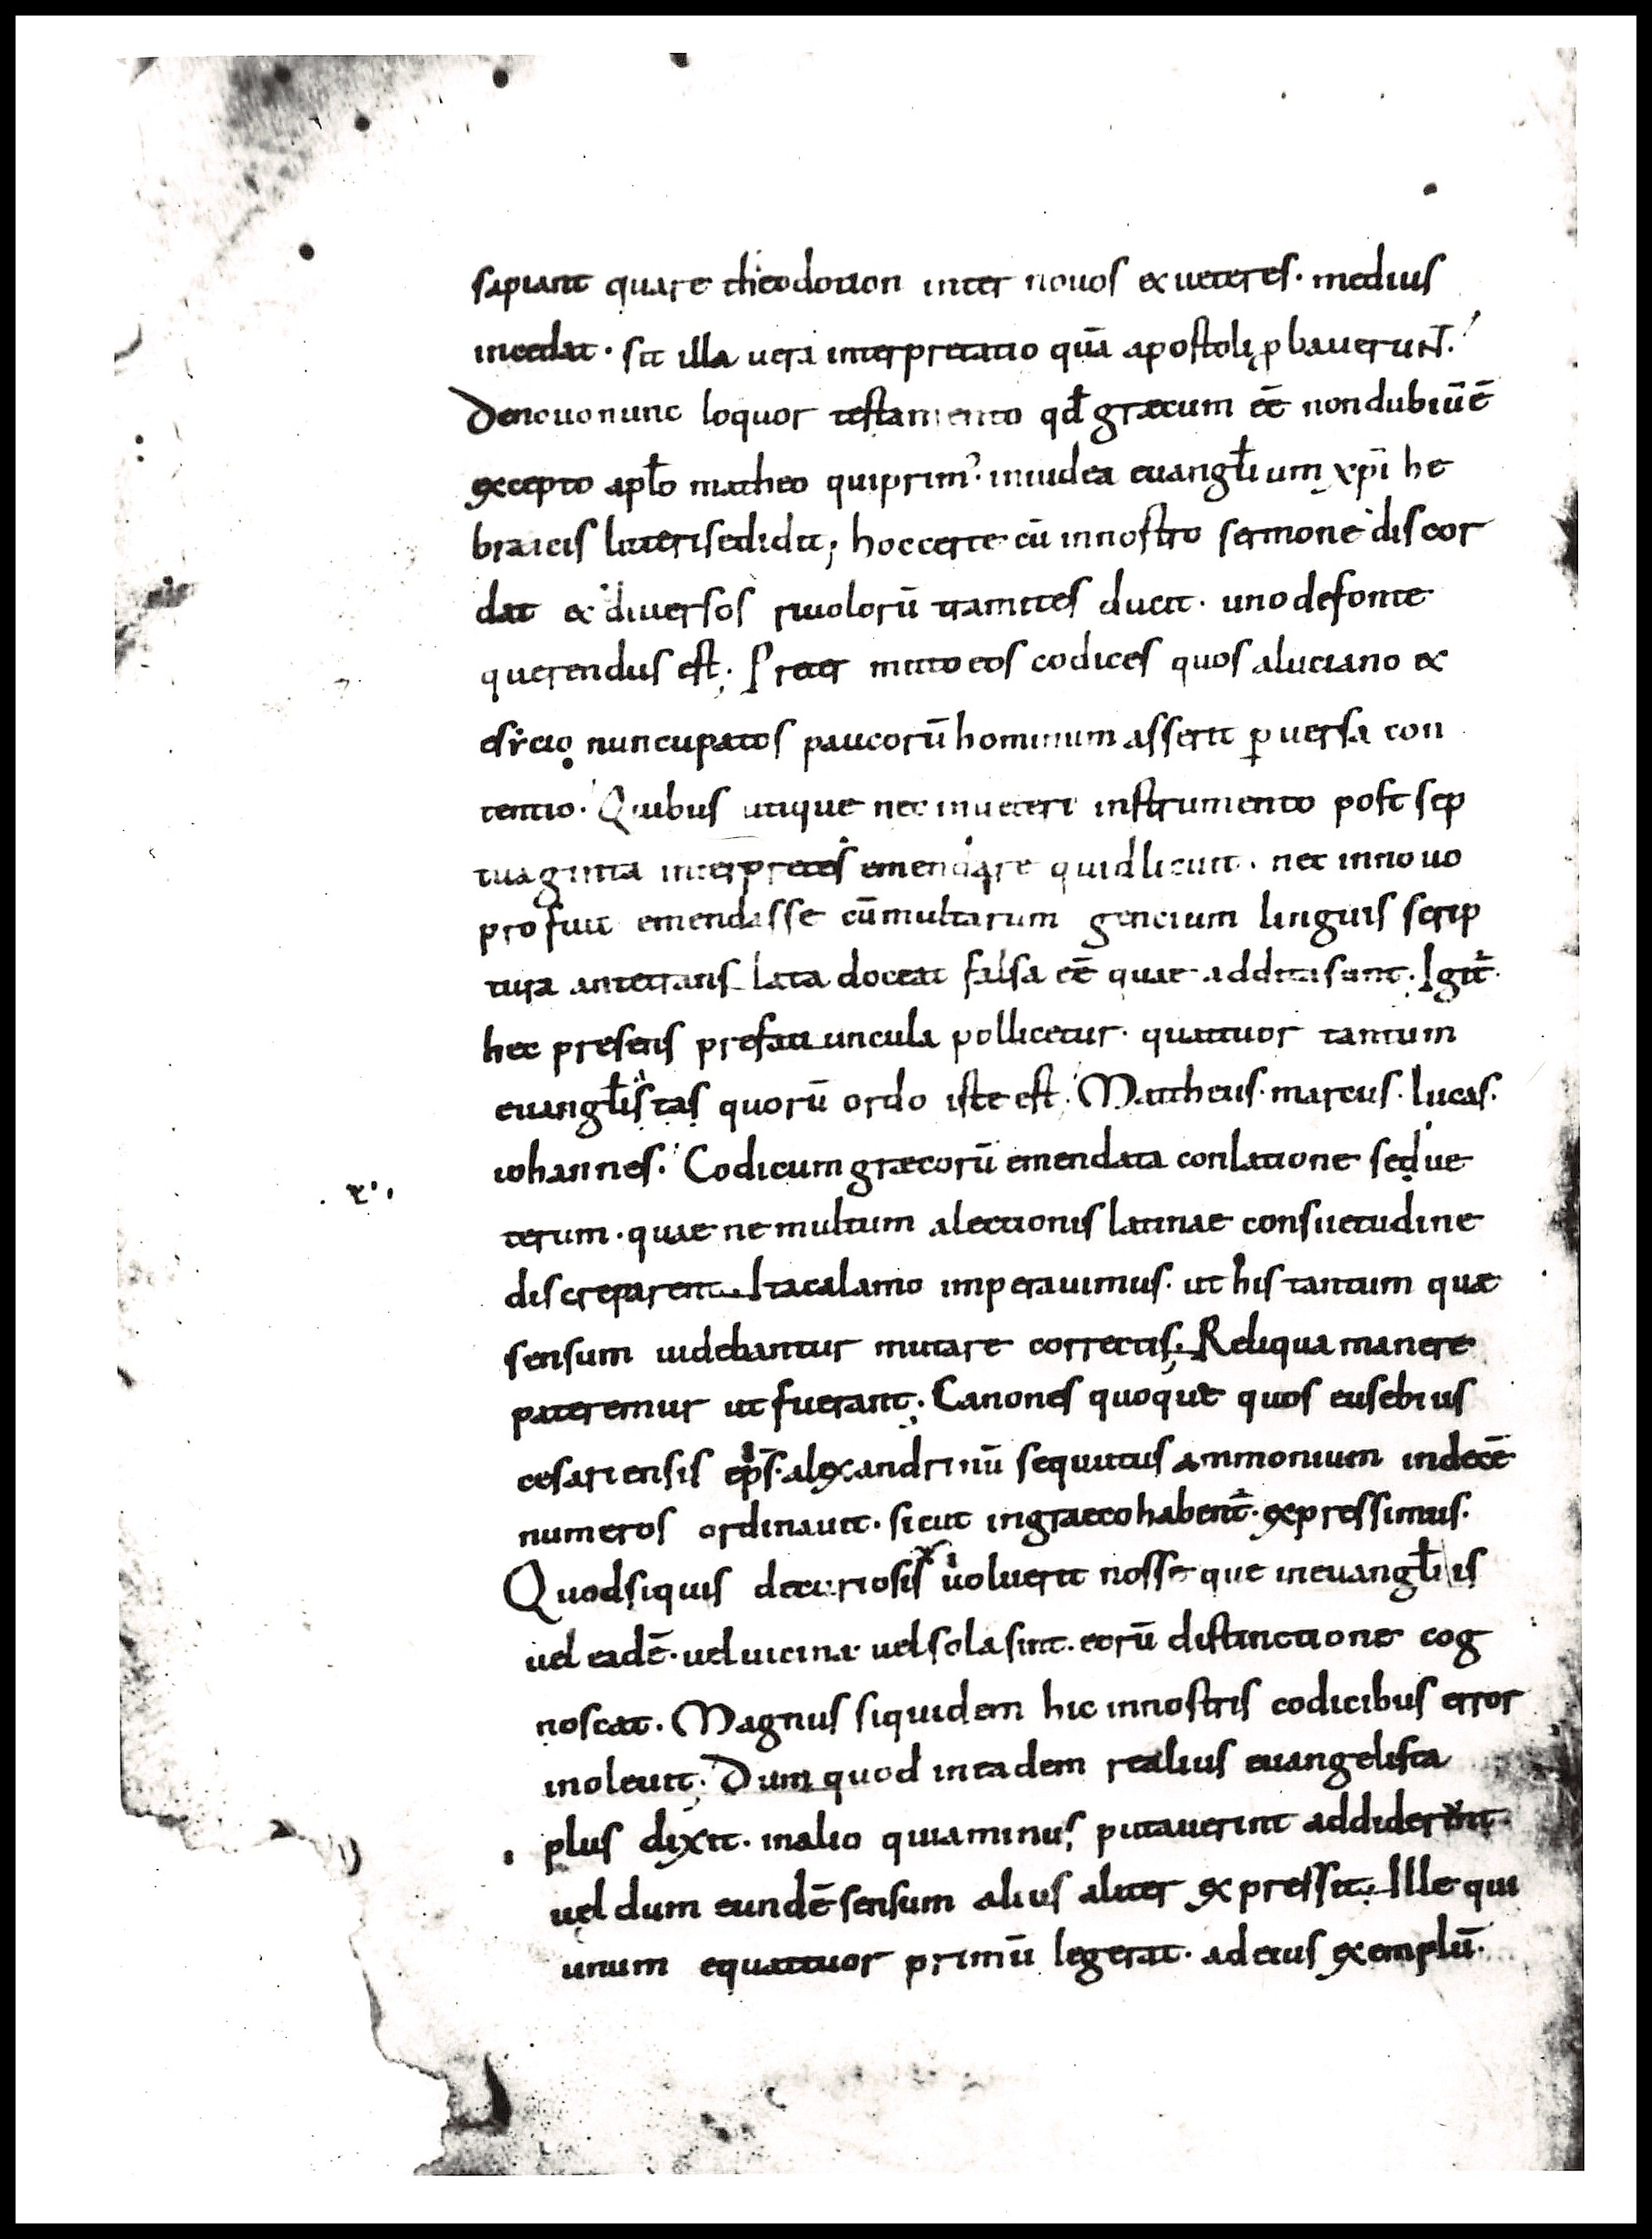 sapiant quare theodotion inter nouos & ueteres. medius
incedat. sit illa uera interpretatio quā apostoli ꝓbauerunt.
Denouo nunc loquor testamento qđ græcum eē non dubiū ē
excepto aplo matheo qui prim᾽. in iudea euanglium xpī he
braicis litteris edidit; hoc certe cū in nostro sermone discor
dat & diuersos riuolorū tramites ducit. uno de fonte
querendus est; Preter mitto eos codices quos a luciano &
esicio nuncupatos paucorū hominum asserit ꝑuersa con
tentio. Quibus utique nec in ueteri instrumento post sep
tuaginta interpretes emendare quid licuit. nec in nouo
profuit emendasse cū multarum gencium linguis scrip
tura ante translata doceat falsa eē quae addita sunt. Igit̄
hec presens prefatiuncula pollicetur. quattuor tantum
euanglistas quorū ordo iste est. Mattheus. marcus. lucas.
iohannes. Codicum græcorū emendata conlatione sed ue
.x.
terum. quae ne multum a lectionis latinae consuetudine
discreparent Ita calamo imperauimus. ut his tantum quæ
sensum uidebantur mutare correctis; Reliqua manere
pateremur ut fuerant; Canones quoque quos eusebius
cesariensis ep̄s. alexandrinū sequutus ammonium in decē
numeros ordinauit. sicut in graeco habent̄. expressimus.
Quod si quis de curiosis uoluerit nosse que in euangliis
uel eadē. uel uicina uel sola sint. eorū distinctione cog
noscat. Magnus siquidem hic in nostris codicibus error
inoleuit; Dum quod in eadem re alius euangelista
plus dixit. in alio quia minus putauerint addiderint.
uel dum eundē sensum alius aliter expressit; Ille qui
unum e quattuor primū legerat. ad eius exemplū.